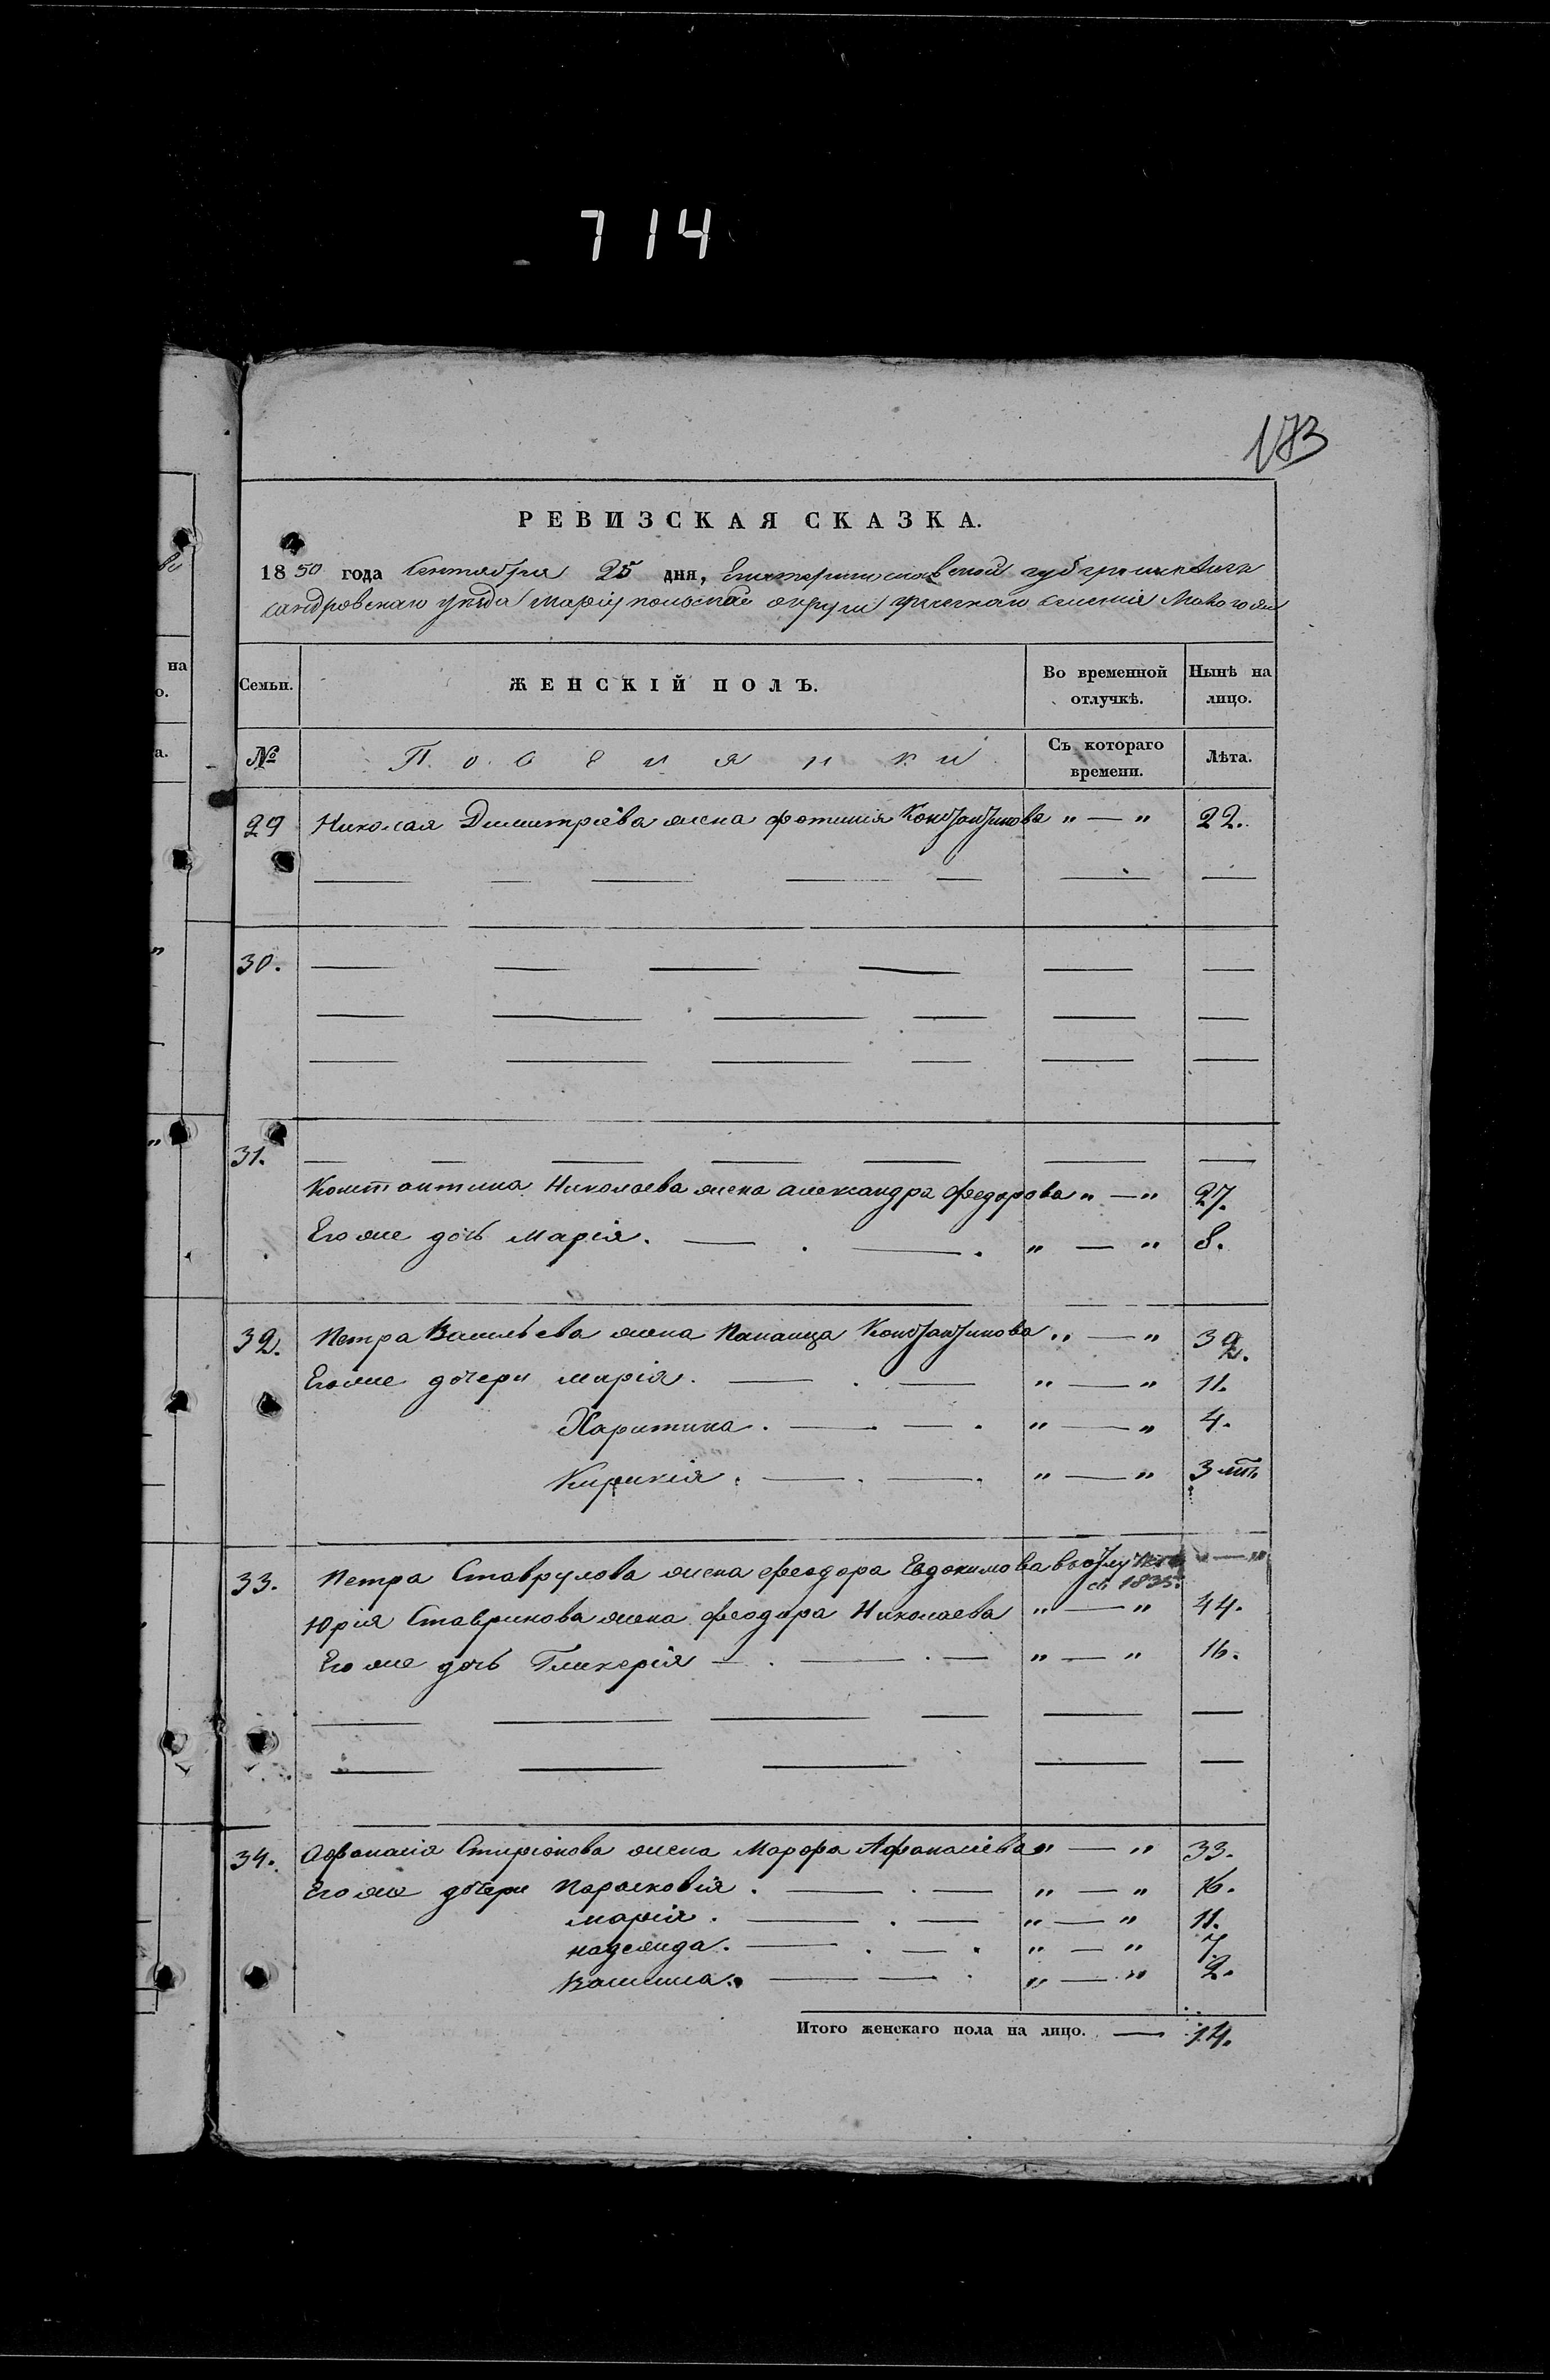 714
173
на
о.
а.
РЕВИЗСКАЯ СКАЗКА.
1850 года Сентября 25 дня, Екатеринославской губерніи Алек
сандровскаго уѣзда Маріупольскаго округа греческаго селенія
Семьи. ЖЕНСКІЙ ПОЛЪ. Во временной отлучкѣ. Нынѣ на лицо.
№ Поселянки Съ котораго времени. Лѣта.
29 Николая Димитріева жена Фотинія Константинова " — " 22.
30.
31.
Константина Николаева жена Александра Федорова " — " 27.
Его же дочь Марія. — . — . " — " 8.
32. Петра Васильева жена Панаица Константинова " — " 32.
Его же дочери Марія. — . — " — " 11.
Харитина. — . — . " — " 4.
Кирикія. — . — . " — " 3 мѣ.
33. Петра Ставрулова жена Феодора Евдокимова въ отлучкѣ " — "
съ 1835.
Юрія Ставринова жена Феодора Николаева " — " 44.
Его же дочь Гликерія — . — . — " — " 16.
34. Афанасія Спиріонова жена Марфа Афанасіева " — " 33.
Его же дочери Парасковія. — . — " — " 16.
Марія. — . — " — " 11.
Надежда. — . — . " — " 7.
Василиса. — — . " — " 2.
Итого женскаго пола на лицо. — 14.